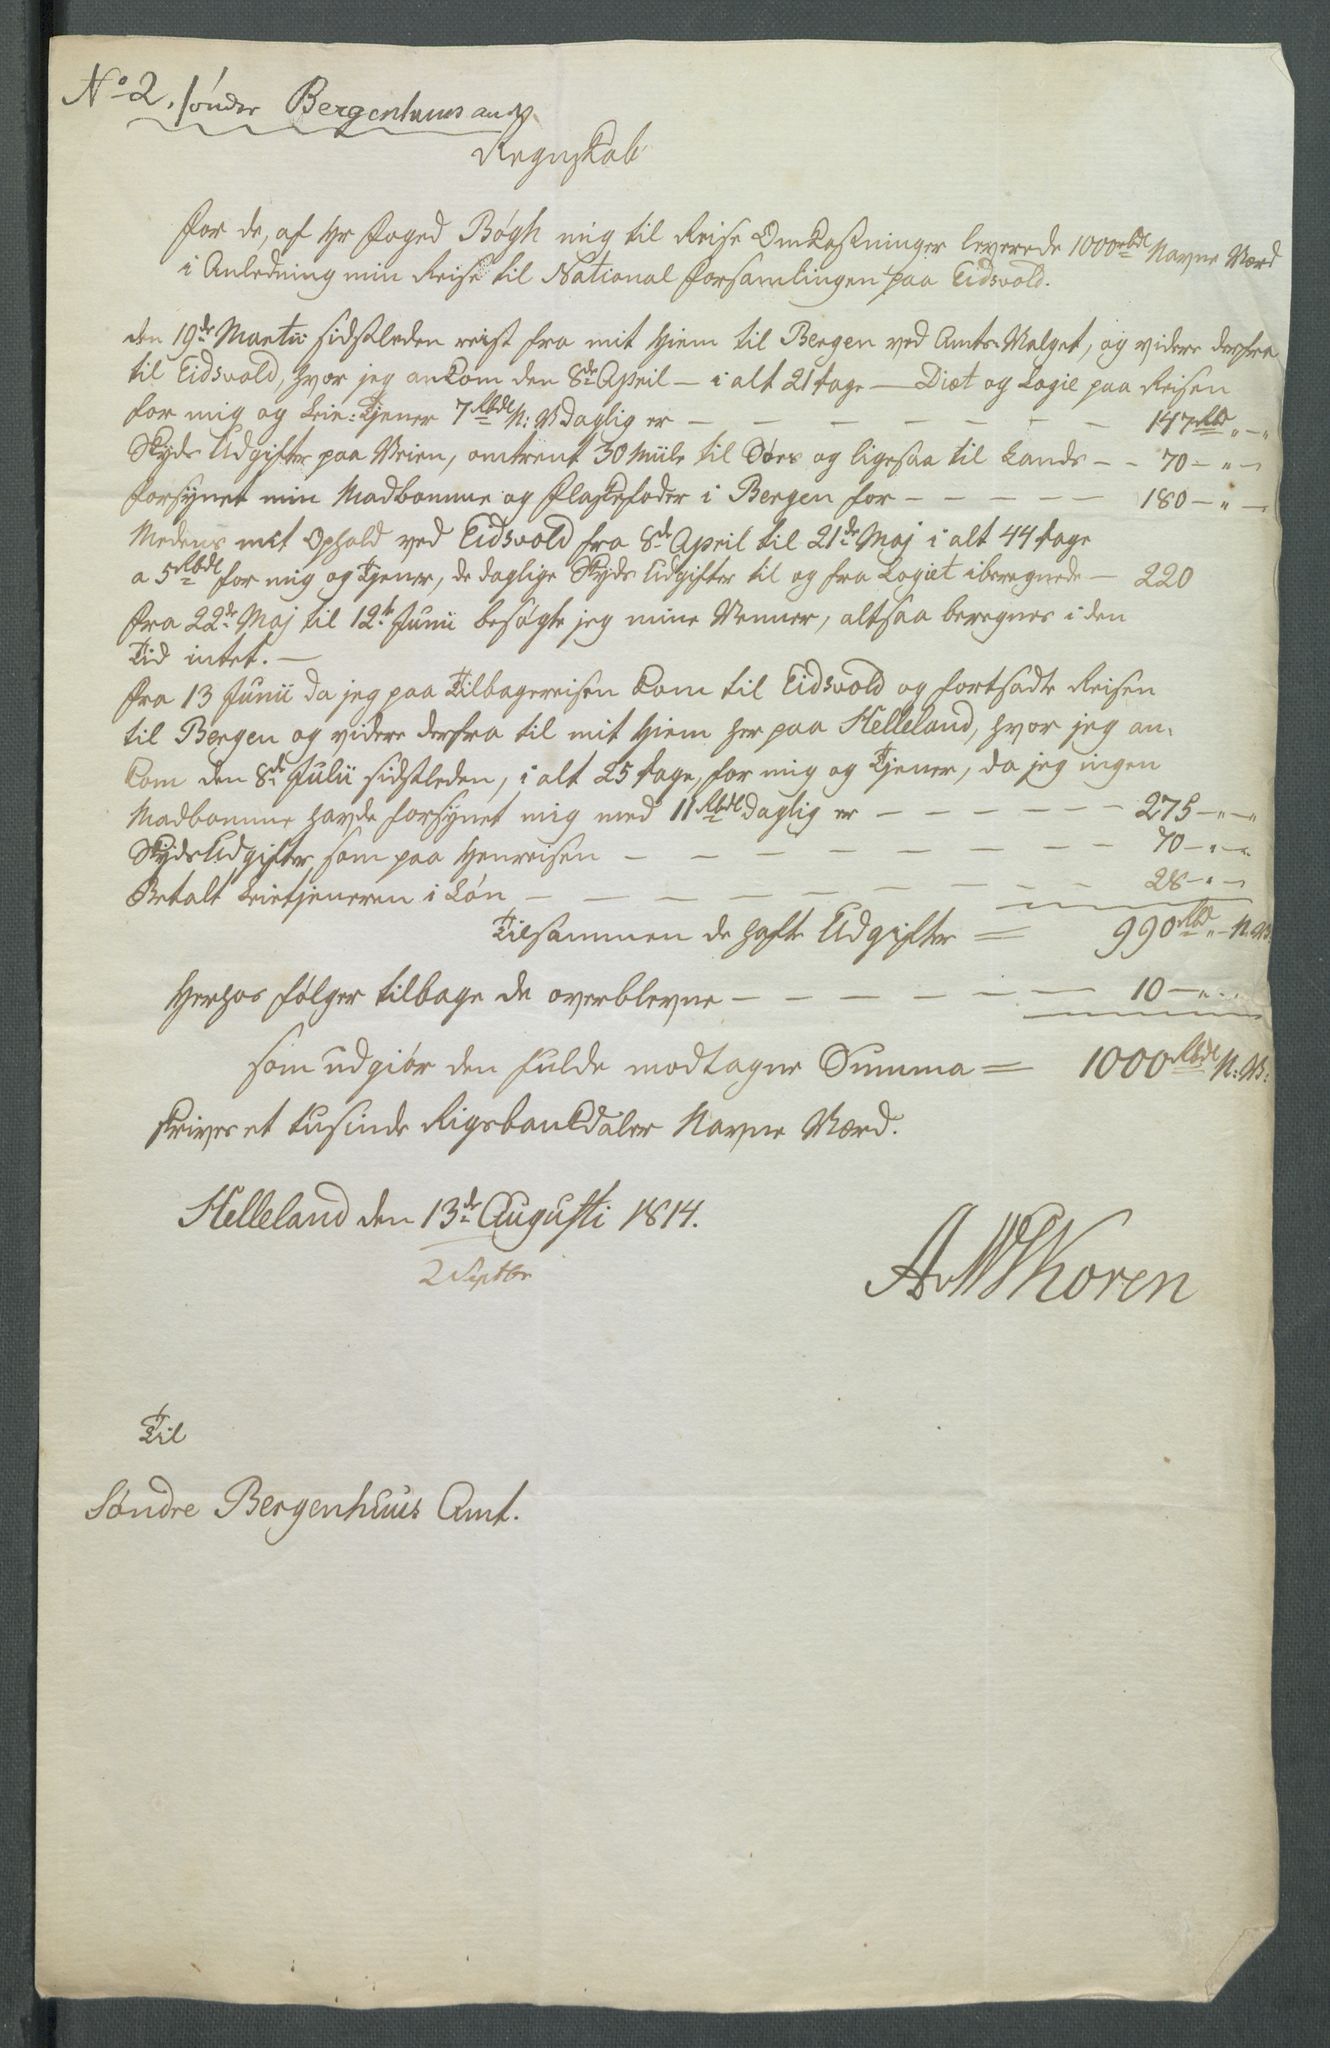 No 2. Sönder Bergenhuus amt
Regnskab
for de, af Hr Foged Bøgh mig til Reise Omkostninger leverede 1000 rbdl Navne Værd
i Anledning min Reise til National forsamlingen paa Eidsvold.
den 19de Martii sidstleden reist fra mit Hiem til Bergen ved Amts-Valget, og videre derfra
til Eidsvold, hvor jeg ankom den 8de April – i alt 21 dage – Diæt og Logie paa Reisen
for mig og Leie-Tjener 7 Rbdl N: V daglig er — — — — — — — 147 Rbd " – "
Skyds Udgifter paa Veien, omtrent 30 Miile til Søes og ligesaa til Lands – – 70 – " –
forsynet min Madbomme og Flaskefoder i Bergen for – – – – – 180 – " –
Medens mit Ophold ved Eidsvold fra 8de April til 21de Maj i alt 44 dage
a 5 Rbdl for mig og Tjener, de daglige Skyds Udgifter til og fra Logiet iberegnede – 220
fra 22de Maj til 12te Junii besøgte jeg mine Venner, altsaa beregnes i den
Tid intet. –
fra 13 Junii da jeg paa Tilbagereisen kom til Eidsvold og fortsadte Reisen
til Bergen og videre derfra til mit Hiem her paa Helleland, hvor jeg an-
kom den 8de Julii sidstleden, i alt 25 dage, for mig og Tjener, da jeg ingen
Madbomme havde forsynet mig med 11 Rbdl daglig er – – – – – – 275 – " – "
Skyds Udgifter som paa Henreisen – – – – – – – – – 70 – " – "
Betalt Leietjeneren i Løn – – – – – – – – – 28 – " –
Tilsammen de hafte Udgifter = 990 Rbd " – N. V.
Herhos følger tilbage de overblevne – – – – – – – 10 – " – "
som udgiør den fulde modtagne Summa = 1000 Rbdl N: V:
skriver et tusinde Rigsbankdaler Navne Værd.
Helleland den 13de Augusti 1814.
2 Septbr
AvWSKoren
Til
Søndre Bergenhuus Amt.